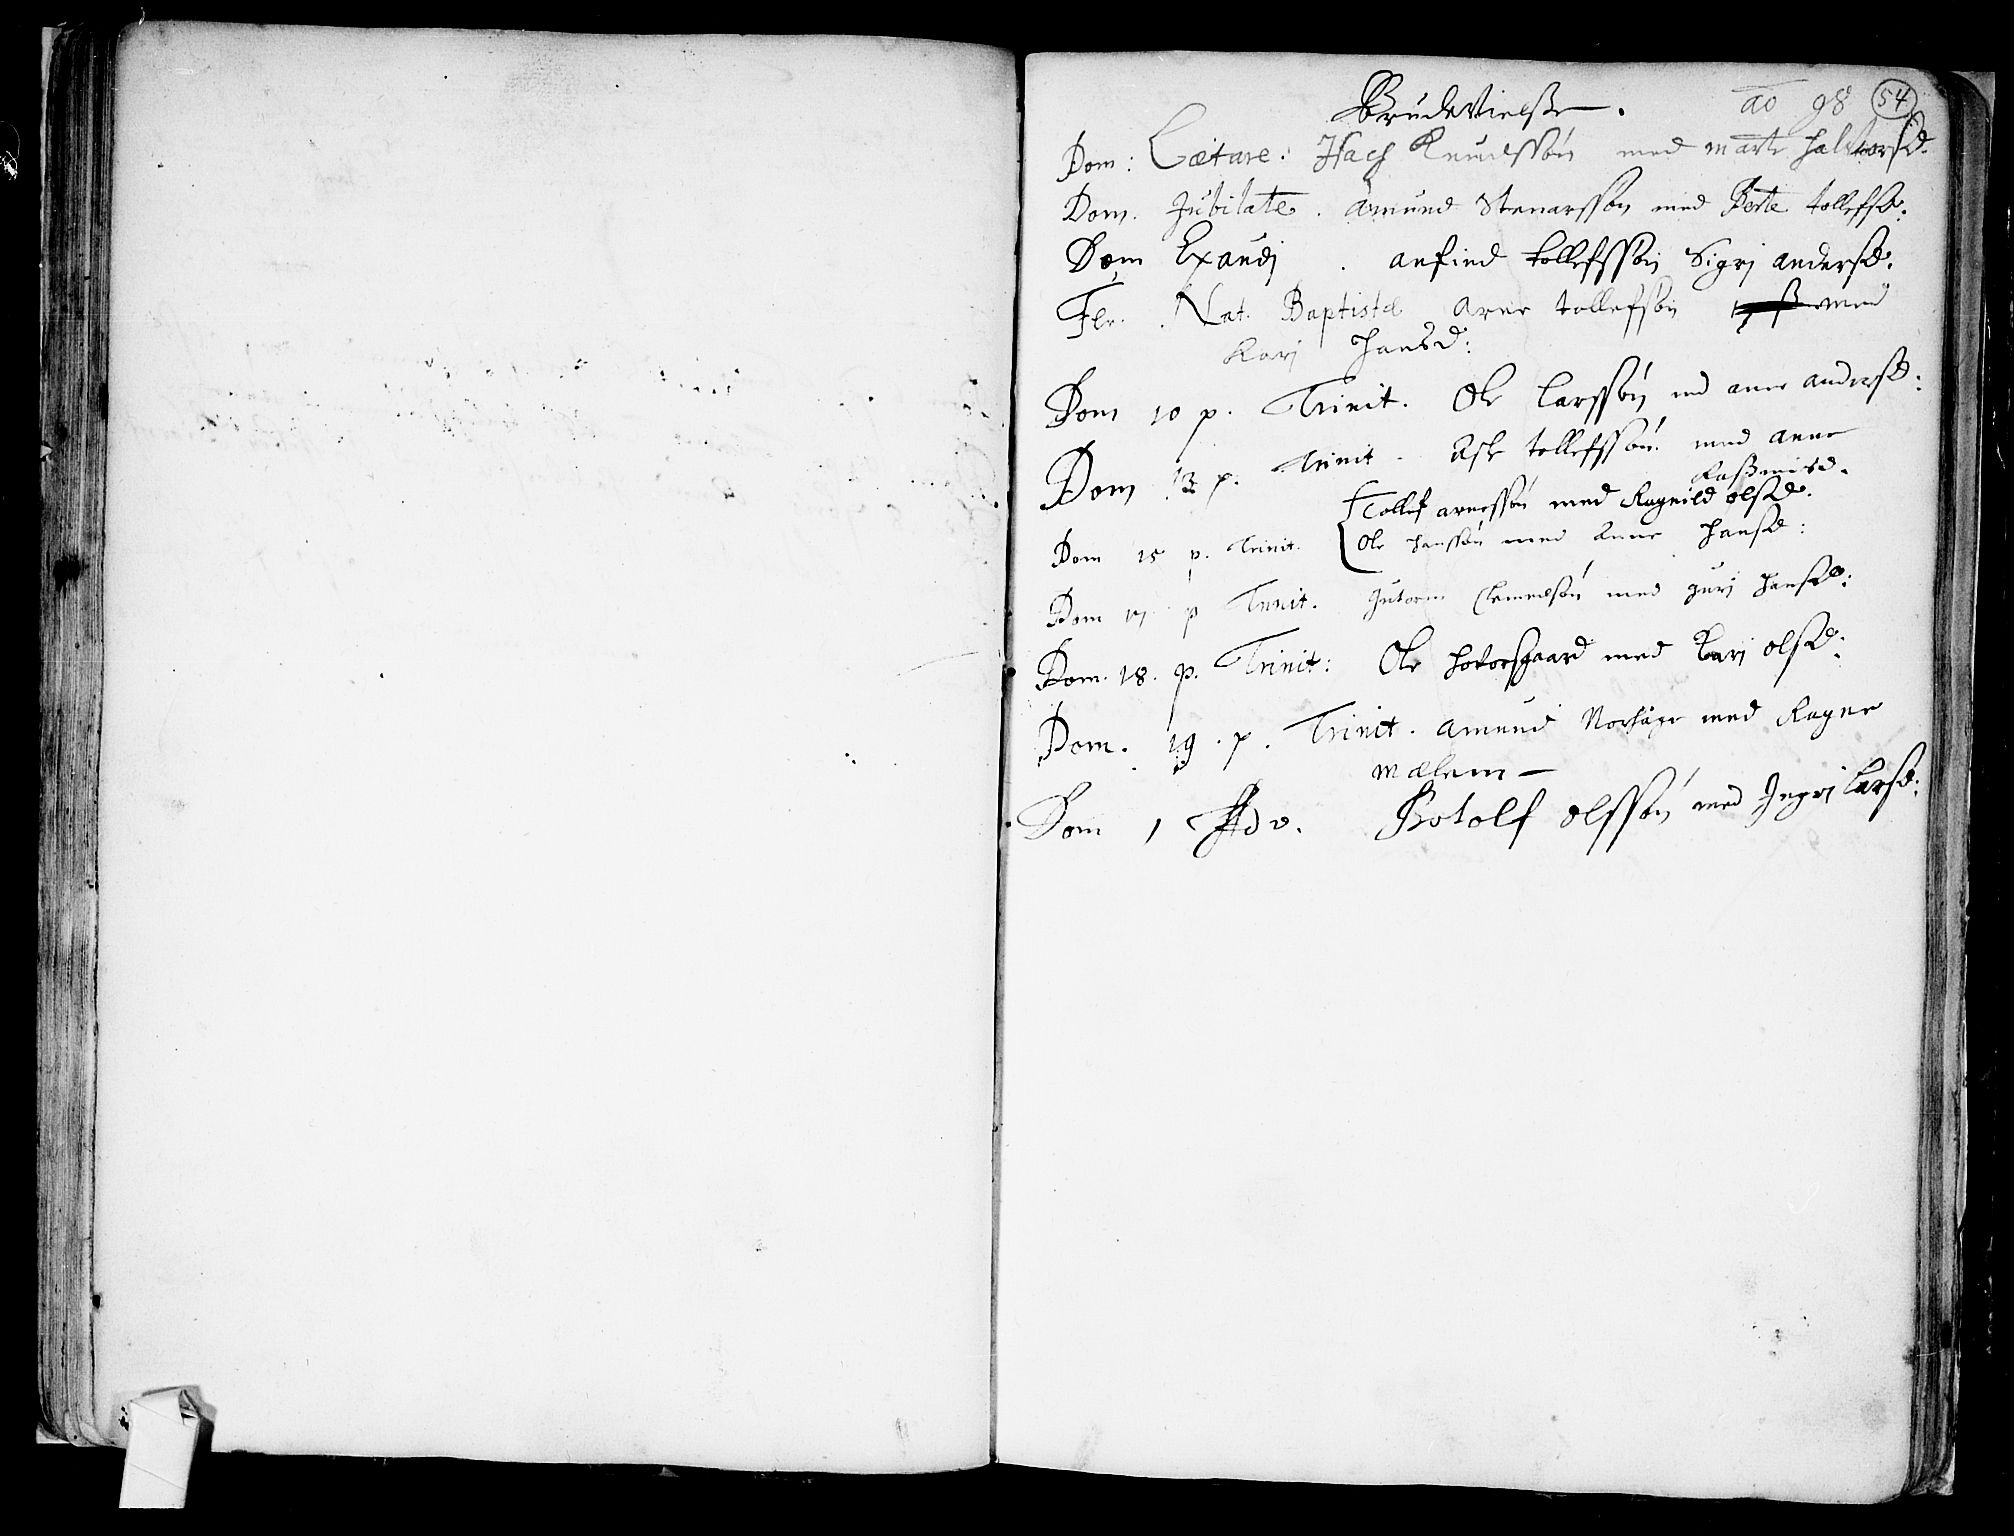 Brudevielse. ao 98 54
Dom: Lætare. Isach Knudssön med marte haltorsd.
Dom. Jubilate. Amund Stenarssön med Berte tollefsd:
Dom Exaudj. anfind tollefssön Sigrj andersd.
Fer. Nat. Baptistæ Arne tollefsön med
Karj Hansd:
Dom 10 p. Trinit. Ole Larssön md anne andersd:
Dom 13 p. Trinit. Asle tollefssön med anne
Rasmisd.
Tollef arnessön med Ragnild olsd.
Dom 15 p. Trinit. Ole Hanssön med Anne Hansd:
Dom 17 p Trinit. Gutorm med gurj Hansd:
Dom. 18. p. Trinit: Ole med Karj olsd:
Dom. 19. p. Trinit. Amund Norhage med Ragne
Mælem
Dom 1 Adv. Botolf olssön med Ingrj Larsd: